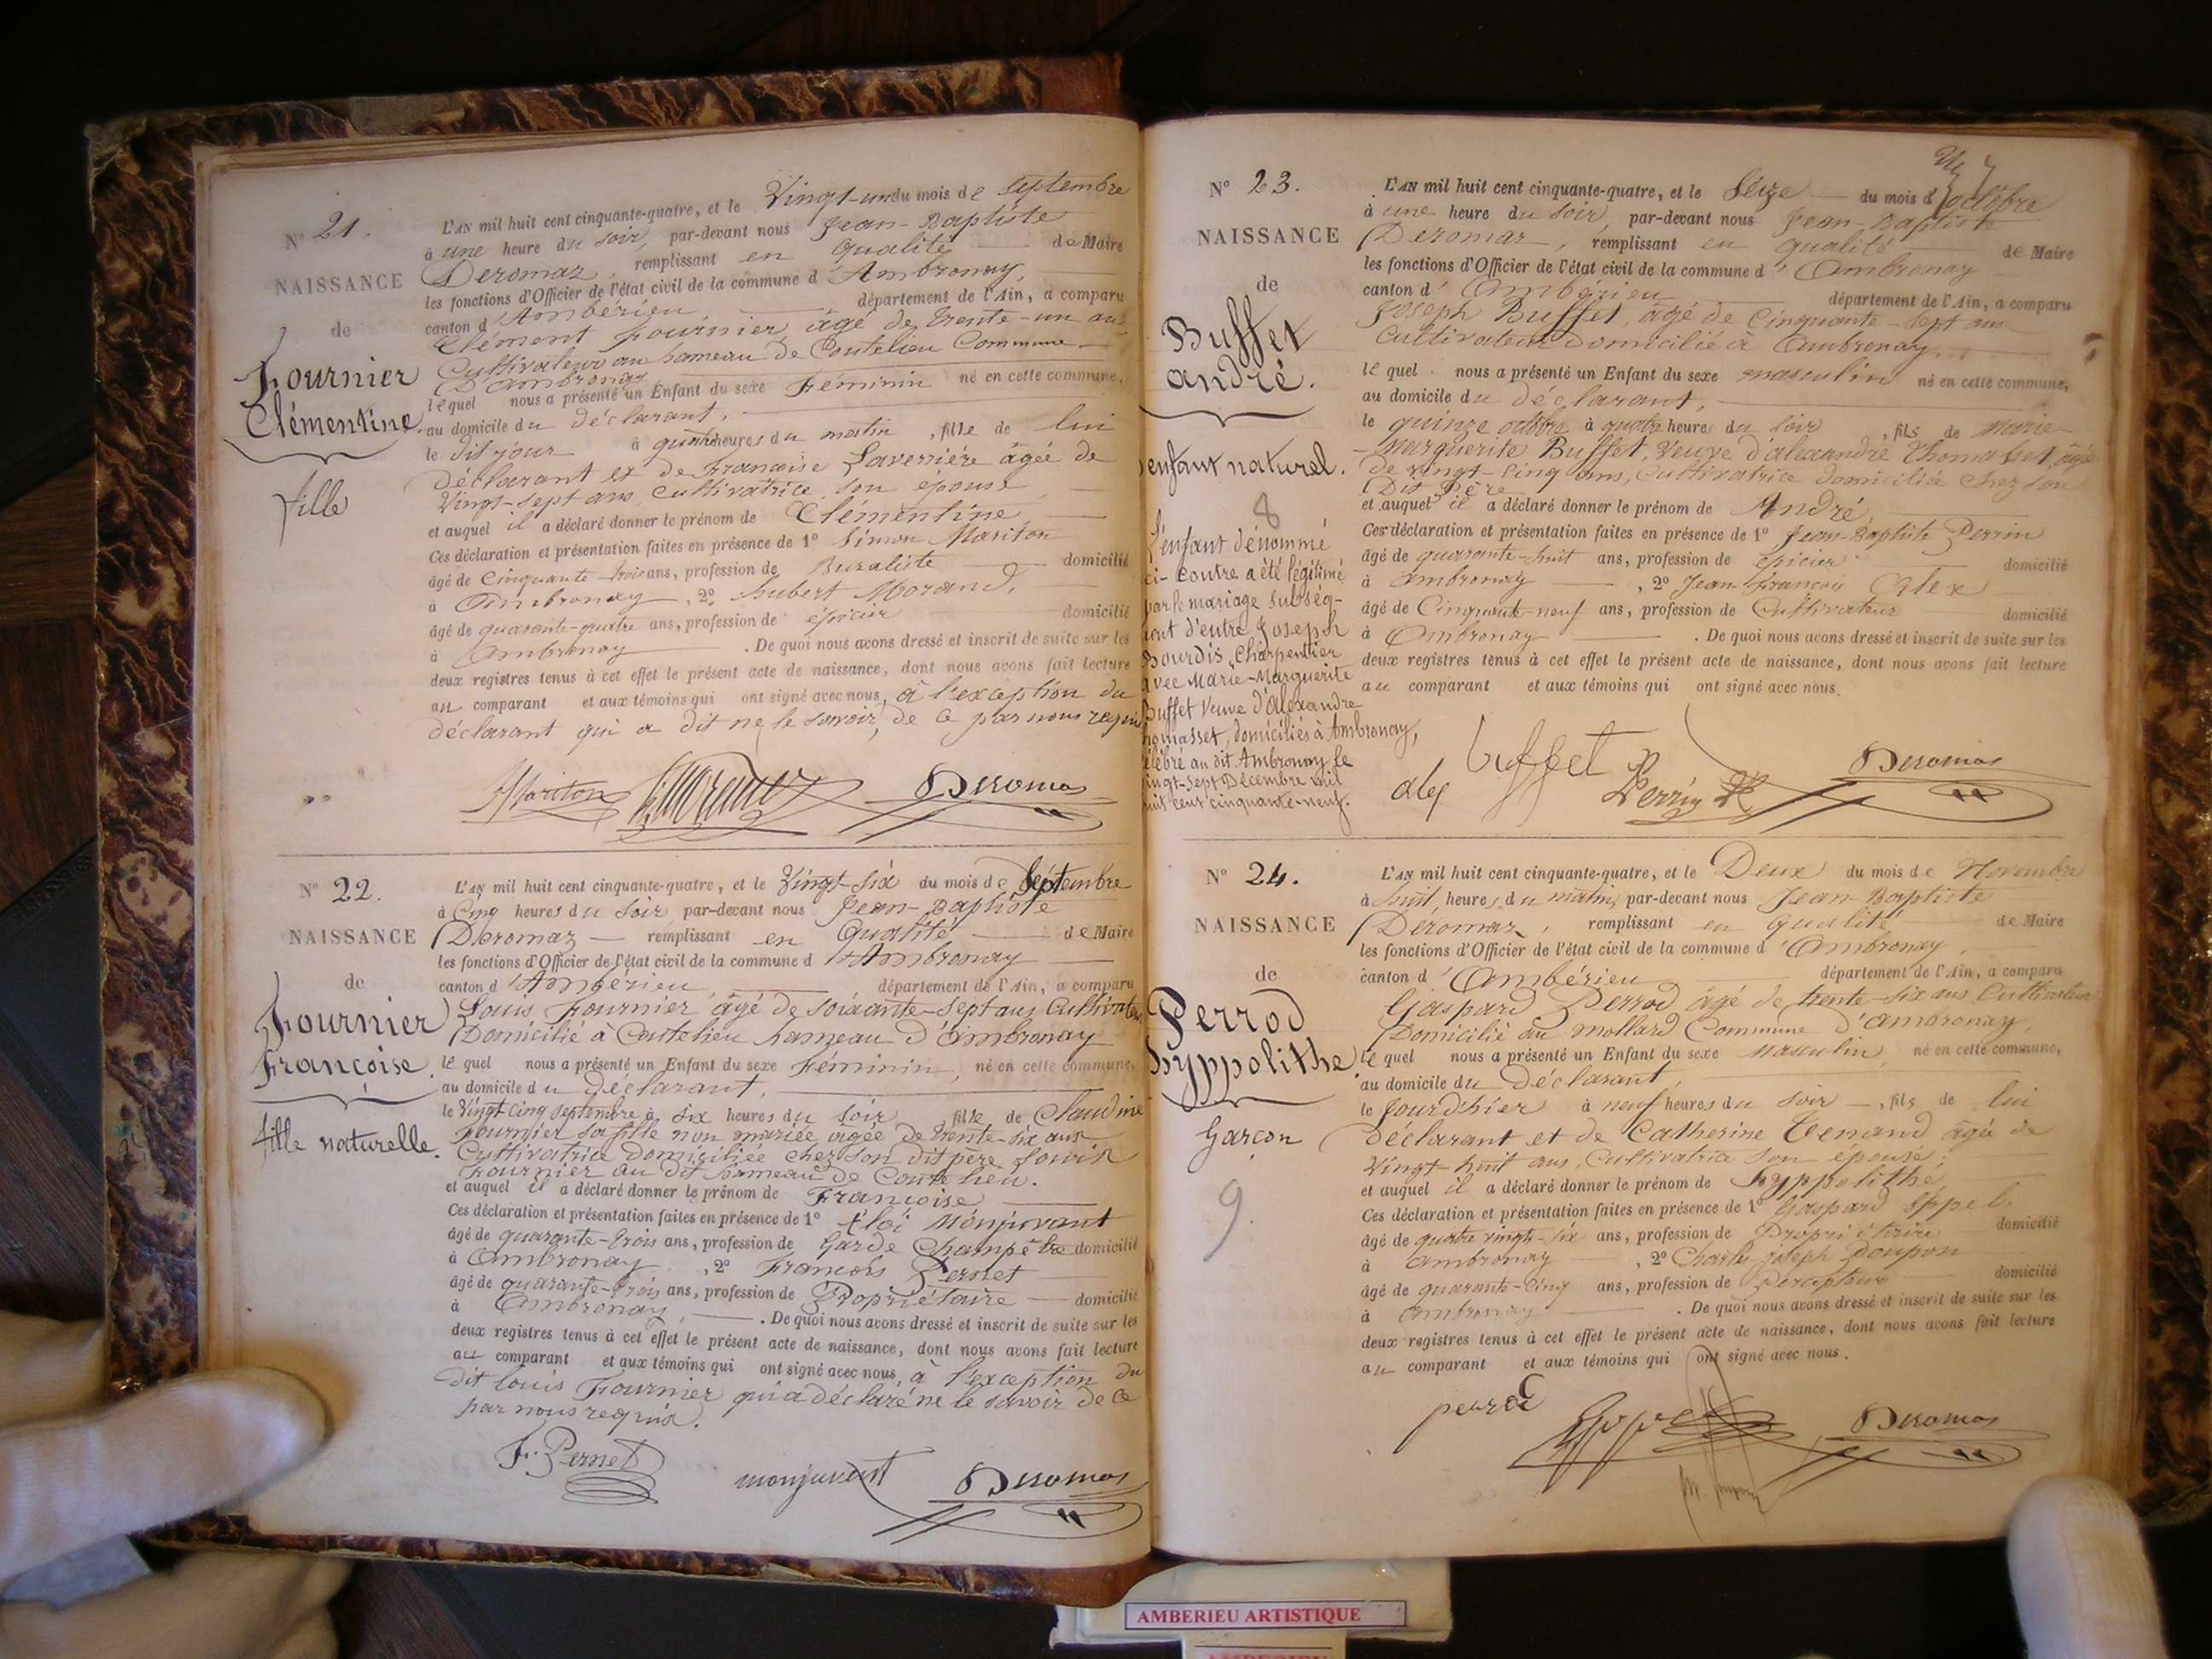 N° 21.
NAISSANCE
de
Fournier
Clémentine.
fille
L'AN mil huit cent cinquante-quatre, et le Vingt-un du mois de Septembre
à une heure du soir, par-devant nous Jean-Baptiste
Deromaz, remplissant en qualité de Maire
les fonctions d'Officier de l'état civil de la commune d'Ambronay,
canton d'Ambérieu département de l'Ain, a comparu
Clément fournier âgé de trente-un ans
Cultivateur au hameau de Coutelieu Commune
D'ambronay
lequel nous a présenté un Enfant du sexe Féminin né en cette commune,
au domicile du déclarant,
le dit jour à quatre heures du matin, fille de lui
déclarant et de françoise Laverrière âgée de
Vingt-sept ans, cultivatrice, son epouse
et auquel il a déclaré donner le prénom de Clémentine,
Ces déclaration et présentation faites en présence de 1° Simon Mariton
âgé de Cinquante-trois ans, profession de Buraliste domicilié
à Ambronay, 2° hubert Morand,
âgé de quarante-quatre ans, profession de épicier domicilié
à Ambronay. De quoi nous avons dressé et inscrit de suite sur les
deux registres tenus à cet effet le présent acte de naissance, dont nous avons fait lecture
au comparant et aux témoins qui ont signé avec nous, à l'exception du
déclarant qui a dit ne le savoir, de ce par nous requis
Mariton Morand Deromas
N° 22.
NAISSANCE
de
Fournier
Françoise.
fille naturelle.
L'AN mil huit cent cinquante-quatre, et le Vingt-six du mois de Septembre
à Cinq heures du soir par-devant nous Jean-Baptiste
Deromaz remplissant en Qualité de Maire
les fonctions d'Officier de l'état civil de la commune d'Ambronay
canton d'Ambérieu, département de l'Ain, a comparu
Louis Fournier âgé de soixante-sept ans Cultivateur
Domicilié à Coutelieu hameau d'Ambronay
lequel nous a présenté un Enfant du sexe Féminin, né en cette commune,
au domicile du déclarant,
le Vingt cinq septembre à six heures du soir, fille de Claudine
Fournier sa fille non mariée âgée de trente-six ans
Cultivatrice Domiciliée chez son dit père Louis
Fournier au dit hameau de Coutelieu.
et auquel il a déclaré donner le prénom de Françoise
Ces déclaration et présentation faites en présence de 1° Eloi Monjuvant
âgé de quarante-trois ans, profession de Garde Champêtre domicilié
à Ambronay, 2° François Pernet
âgé de quarante-trois ans, profession de Propriétaire domicilié
à Ambronay. De quoi nous avons dressé et inscrit de suite sur les
deux registres tenus à cet effet le présent acte de naissance, dont nous avons fait lecture
au comparant et aux témoins qui ont signé avec nous, à l'exception du
dit louis Fournier qui a déclaré ne le savoir de ce
par nous requis.
F. Pernet monjuvant Deromas
N° 23.
NAISSANCE
de
Buffet
andré.
enfant naturel.
8
l'enfant dénommé
ci-contre a été légitimé
par le mariage subség-
ent d'entre Joseph
Bourdis, Charpentier
avec Marie-Marguerite
Buffet Veuve d'Alexandre
homasset, domiciliés à Ambronay,
célébré au dit Ambronay le
vingt-sept Décembre mil
huit cent cinquante-neuf.
L'AN mil huit cent cinquante-quatre, et le Séize du mois d'octobre
à une heure du soir, par-devant nous Jean-Baptiste
Deromaz, remplissant en qualité de Maire
les fonctions d'Officier de l'état civil de la commune d'Ambronay
canton d'Ambérieu département de l'Ain, a comparu
Joseph Buffet, âgé de Cinquante-sept ans
Cultivateur Domicilié à Ambronay
lequel nous a présenté un Enfant du sexe masculin né en cette commune,
au domicile du déclarant,
le quinze octobre à quatre heures du soir, fils de Marie-
Marguerite Buffet, Veuve d'alexandre Thomasset, âgée
de vingt-cinq ans, Cultivatrice domiciliée chez son
Dit Père
et auquel il a déclaré donner le prénom de André,
Ces déclaration et présentation faites en présence de 1° Jean-Baptiste Perrin
âgé de quarante-huit ans, profession de épicier domicilié
à Ambronay, 2° Jean-françois Alex
âgé de Cinquante-neuf ans, profession de Cultivateur domicilié
à Ambronay. De quoi nous avons dressé et inscrit de suite sur les
deux registres tenus à cet effet le présent acte de naissance, dont nous avons fait lecture
au comparant et aux témoins qui ont signé avec nous.
alex buffet Perrin Deromas
N° 24.
NAISSANCE
de
Perrod
hyppolithe.
Garçon
9.
L'AN mil huit cent cinquante-quatre, et le Deux du mois de Novembre
à huit heures du matin, par-devant nous Jean Baptiste
Déromaz, remplissant en qualité de Maire
les fonctions d'Officier de l'état civil de la commune d'Ambronay,
canton d'Ambérieu département de l'Ain, a comparu
Gaspard Perrod âgé de trente-six ans Cultivateur
Domicilié au mollard Commune d'ambronay,
lequel nous a présenté un Enfant du sexe Masculin, né en cette commune,
au domicile du Déclarant,
le Jourd'hier à neuf heures du soir, fils de lui
déclarant et de Catherine Tenand âgée de
Vingt-huit ans, Cultivatrice son épouse;
et auquel il a déclaré donner le prénom de hyppolithe,
Ces déclaration et présentation faites en présence de 1° Gaspard
âgé de quatre vingt-six ans, profession de Propriétaire domicilié
à Ambronay, 2° Charles joseph
âgé de quarante-cinq ans, profession de Percepteur domicilié
à Ambronay. De quoi nous avons dressé et inscrit de suite sur les
deux registres tenus à cet effet le présent acte de naissance, dont nous avons fait lecture
au comparant et aux témoins qui ont signé avec nous.
Deromas
AMBERIEU ARTISTIQUE
AMBERIEU